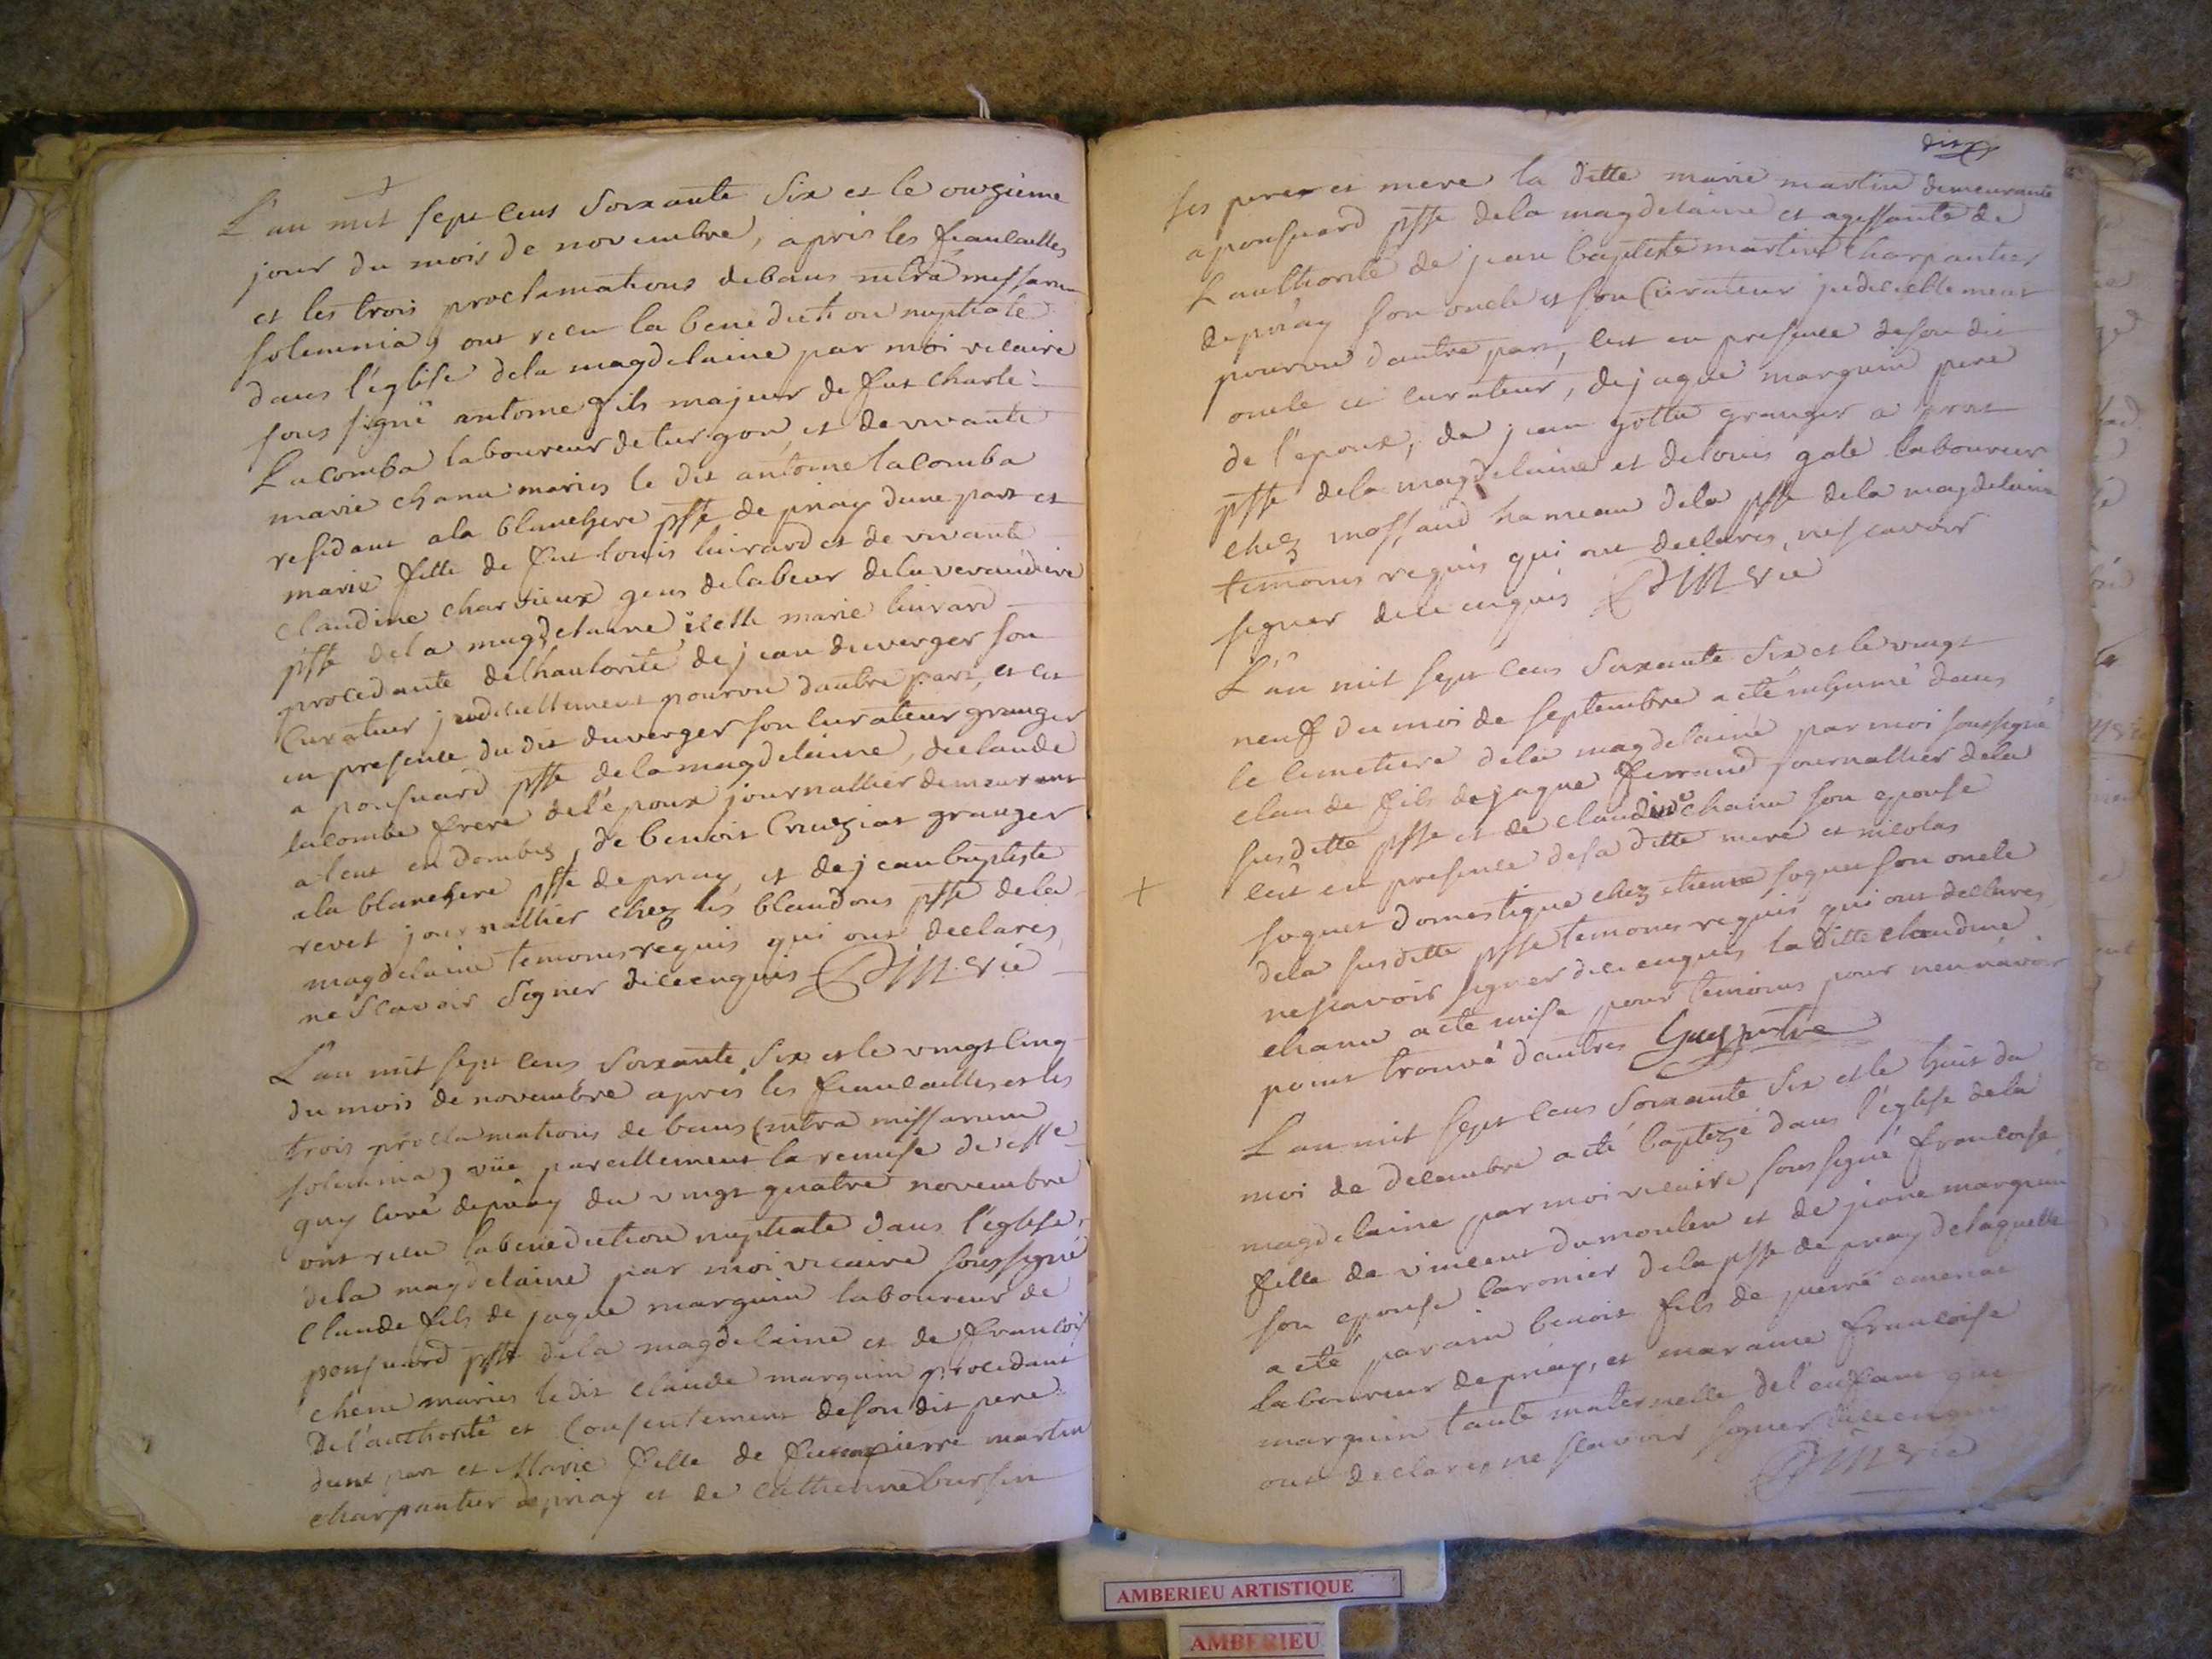 L'an mil sept cens soixante six et le onzième
jour du mois de novembre, après les fiancailles
et les trois proclamations debans intra missarum
solemnia, ont recu la benediction nuptiale
dans l'église dela magdelaine par moi vicaire
sous signé antoine fils majeur de fut charle
Lacomba laboureur de turgon et de vivante
marie chanu mariés le dit antoine lacomba
residant ala blanchere psse de priay dune part et
marie fille de fut louis luirard et de vivante
Claudine charvieux gens de labeur dela verandiere
psse dela magdelaine icelle marie luirard
procedante delhautorité de jean duverger son
Curateur judiciellement pourvu dautre part, et cet
en presence du dit duverger son curateur granger
a ponsuard psse dela magdelaine, declaude
lacombe frere del'époux journallier demeurant
alent en dombes, de benoit Cruziat granger
ala blanchere psse de priay et dejeanbaptiste
revet journallier chez les blandons psse dela
magdelaine temoins requis qui ont declarés
ne scavoir signer diceenquis DIM. vic
L'an mil sept cens soixante six et le vingt cinq
du mois de novembre après les fiancailles et les
trois proclamations de bans (intra missarum
solemnia) vüe pareillement la remise de messe
guy curé depriay du vingt quatre novembre
ont recu labenediction nuptiale dans l'église
dela magdelaine par moi vicaire soussigné
Claude fils de jaque marguin laboureur de
ponsuard psse dela magdelaine et de francoise
chene mariés ledit claude marguin procedant
De l'authorité et Consentement deson dit pere
dune part et Marie fille de pierre martin
charpantier depriay et de catherine bursin
dix
ses peres et mere la ditte marie martin demeurante
aponsuard psse dela magdelaine et agissante de
Lauthorité de jean baptiste martin charpantier
depriay son oncle et son Curateur judiciellement
pourvu dautre part, cest en presence deson dit
oncle et curateur, dejaque marguin pere
de l'epoux, de jean gottu granger a
psse dela magdelaine et delouis gale laboureur
chez mossand hameau dela psse dela magdelaine
temoins requis qui ont declarés, nescavoir
signer dece enquis DIM vic
L'an mil sept cens soixante six et le vingt
neuf du moi de septembre a eté inhumé dans
le cimetiere dela magdelaine par moi soussigné
claude fils dejaque ferrand journallier dela
susditte psse et de claudine chanu son epouse
cest en presence desa ditte mere et nicolas
soquet domestique chez etienne soquet son oncle
dela susditte psse temoins requis qui ont declarés
nescavoir signer dece enquis la ditte claudine
chanu a eté mise pour temoins pour nen navoir
point trouvé dautres Guy
L'an mil sept cens soixante six et le huit du
moi de decembre a eté baptizé dans l'église dela
magdelaine par moi vicaire soussigné francoise
fille de vincent dumoulin et de jeane marguin
son epouse caronier dela psse de priay delaquelle
a eté parain benoit fils de pierre
laboureur depriay, et maraine francoise
marguin tante maternelle del'enfant qui
ont declarés ne scavoir signer dicéenquis
DIM vic
AMBERIEU ARTISTIQUE
AMBERIEU